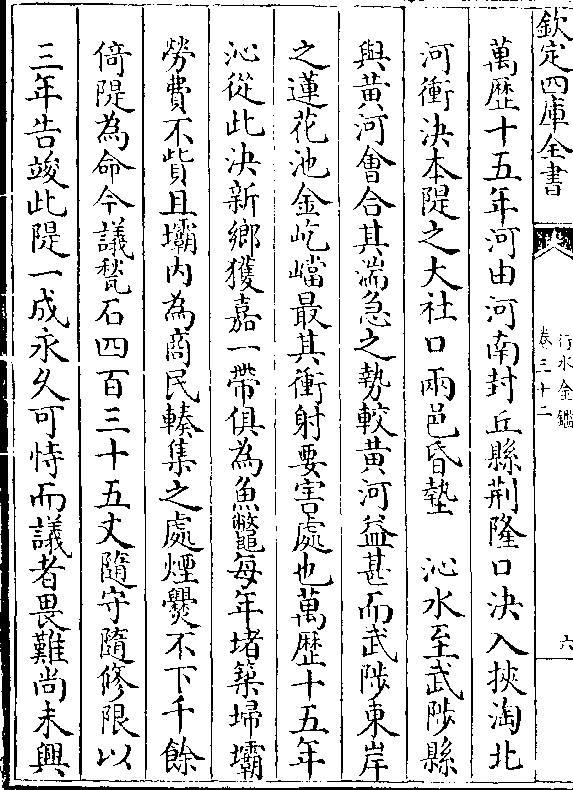 欽定四庫全書
行水金鑑
卷三十二
六
萬歴十五年河由河南封丘縣荆隆口決入挾淘北
河衝決本隄之大社口兩邑昏墊　沁水至武陟縣
與黄河會合其湍急之勢較黄河益甚而武陟東岸
之蓮花池金屹嵣最其衝射要害處也萬歴十五年
沁從此決新鄉獲嘉一帶俱為魚鼈每年堵築埽壩
勞費不貲且壩内為商民輳集之處煙爨不下千餘
倚隄為命今議甃石四百三十五丈隨守隨修限以
三年告竣此隄一成永久可恃而議者畏難尚未興